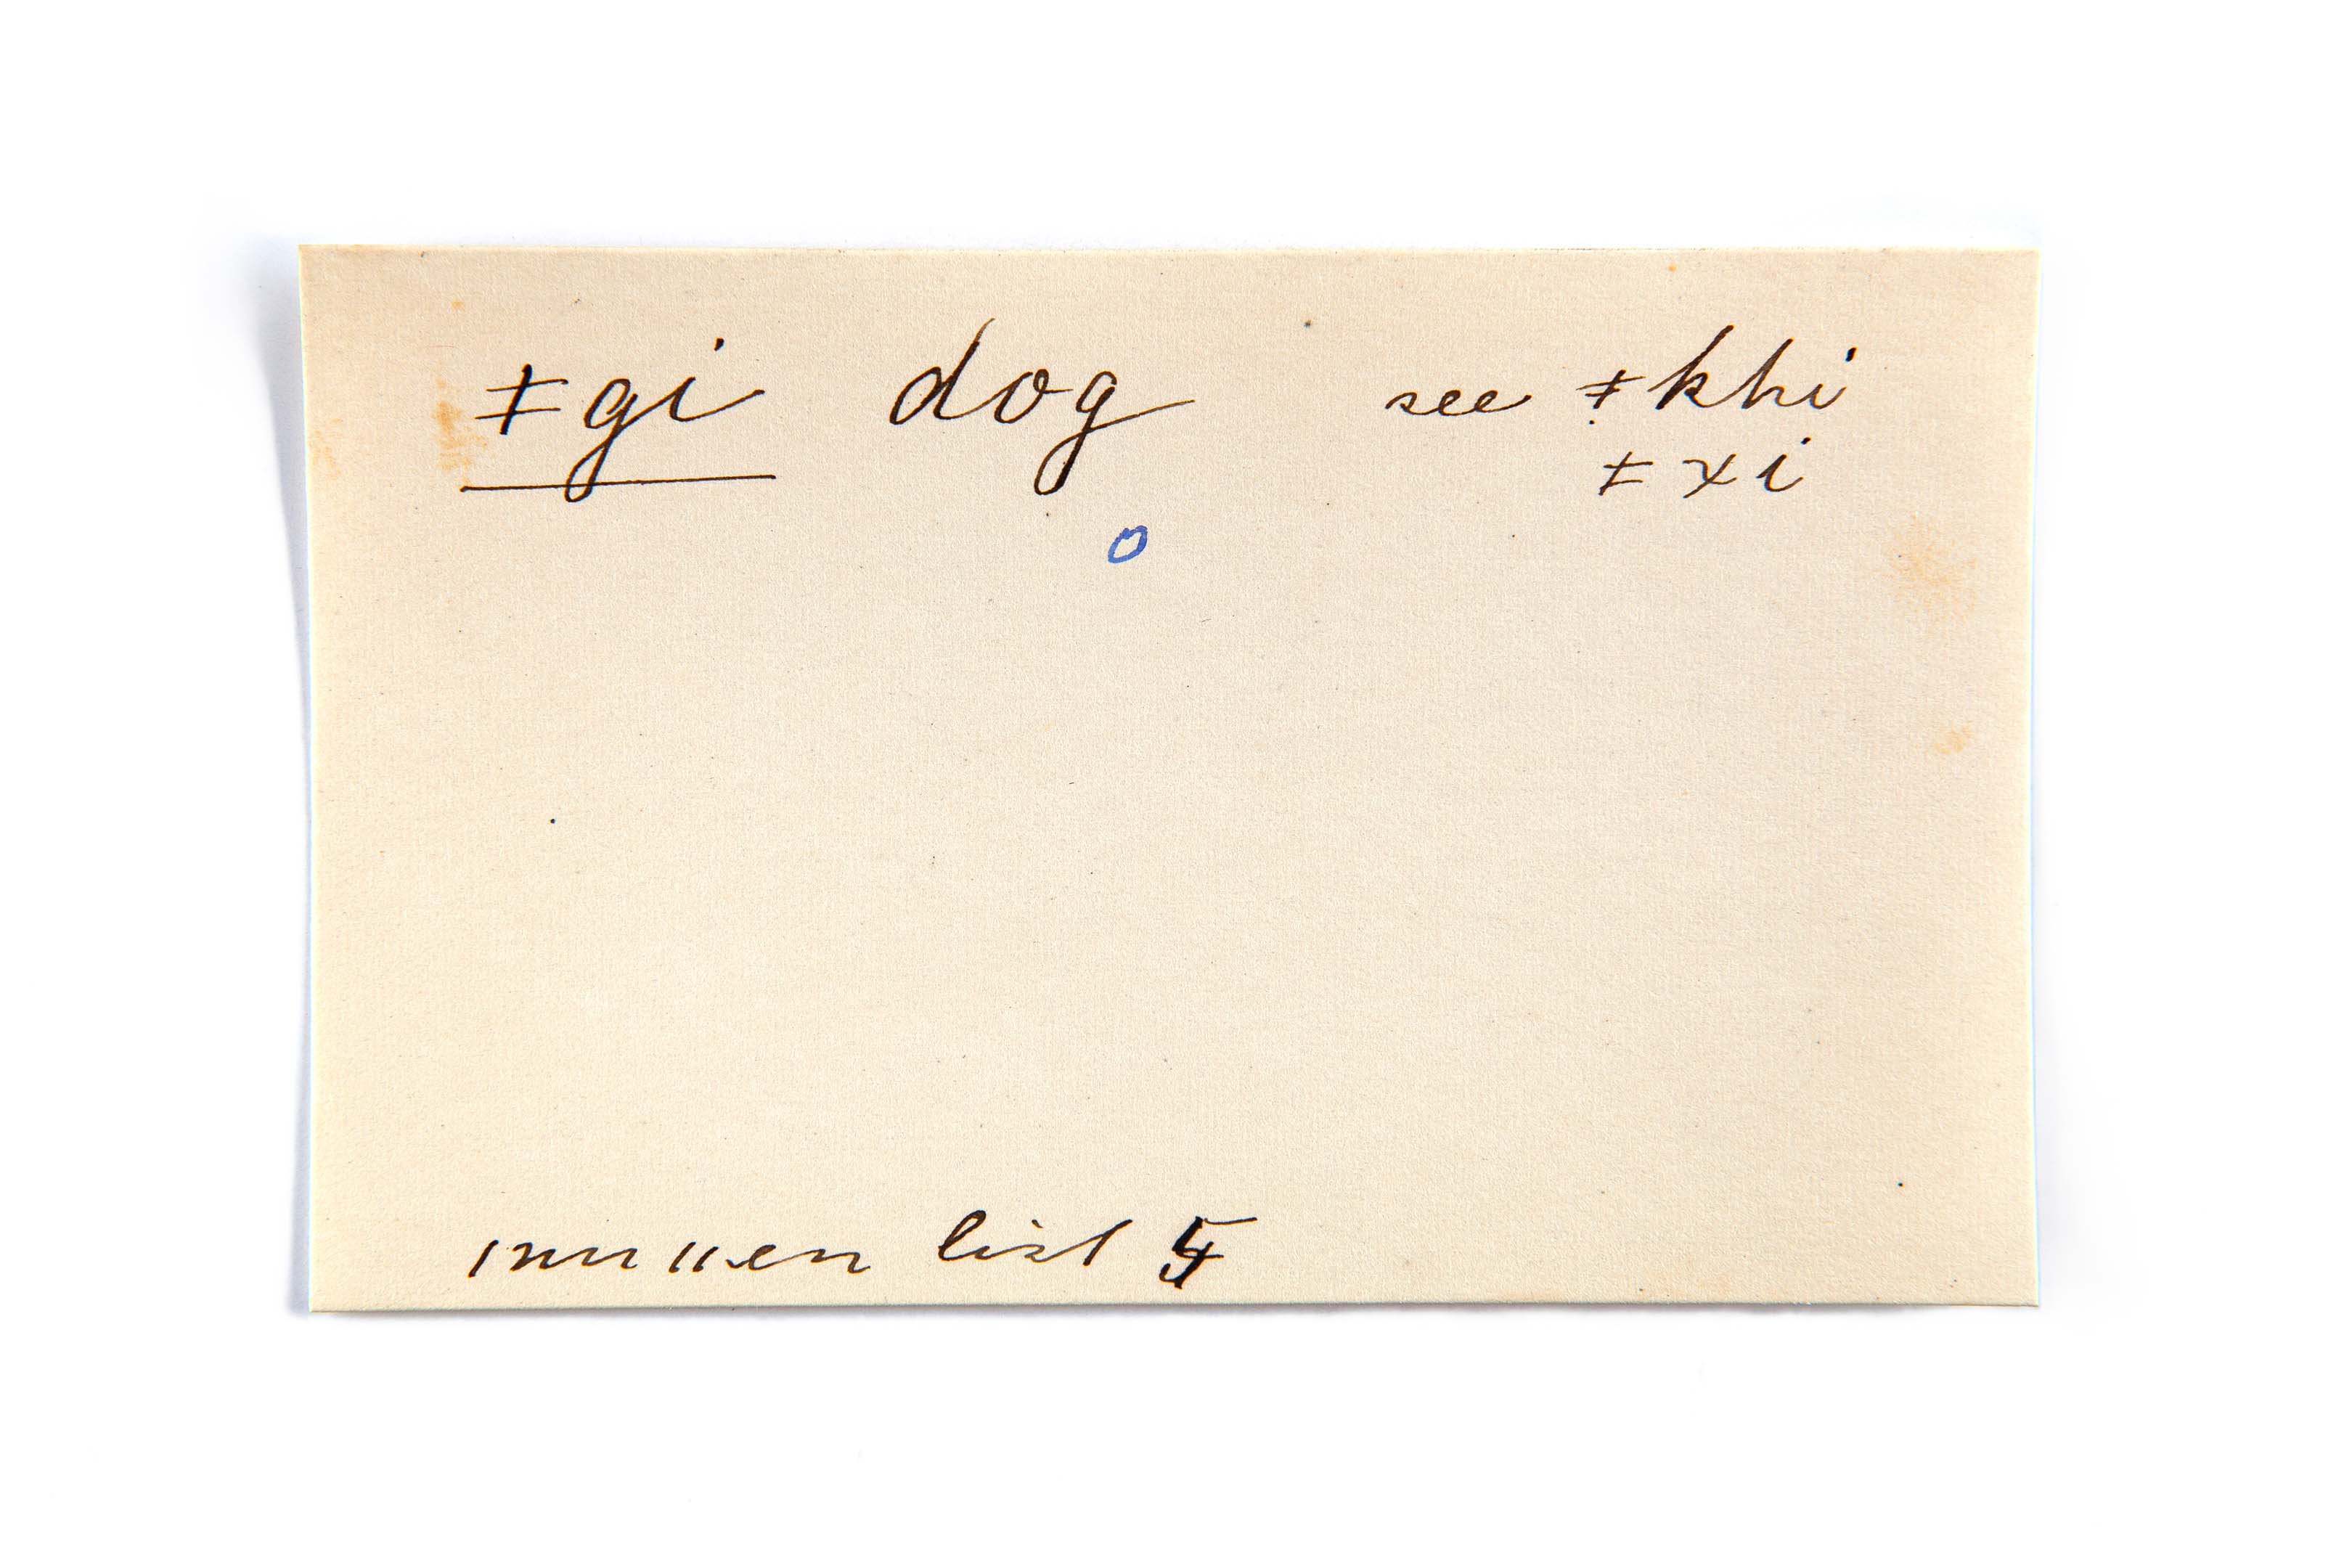 ǂgi dog see ǂkhi
ǂxi
o
ǀnu ǁen list 5